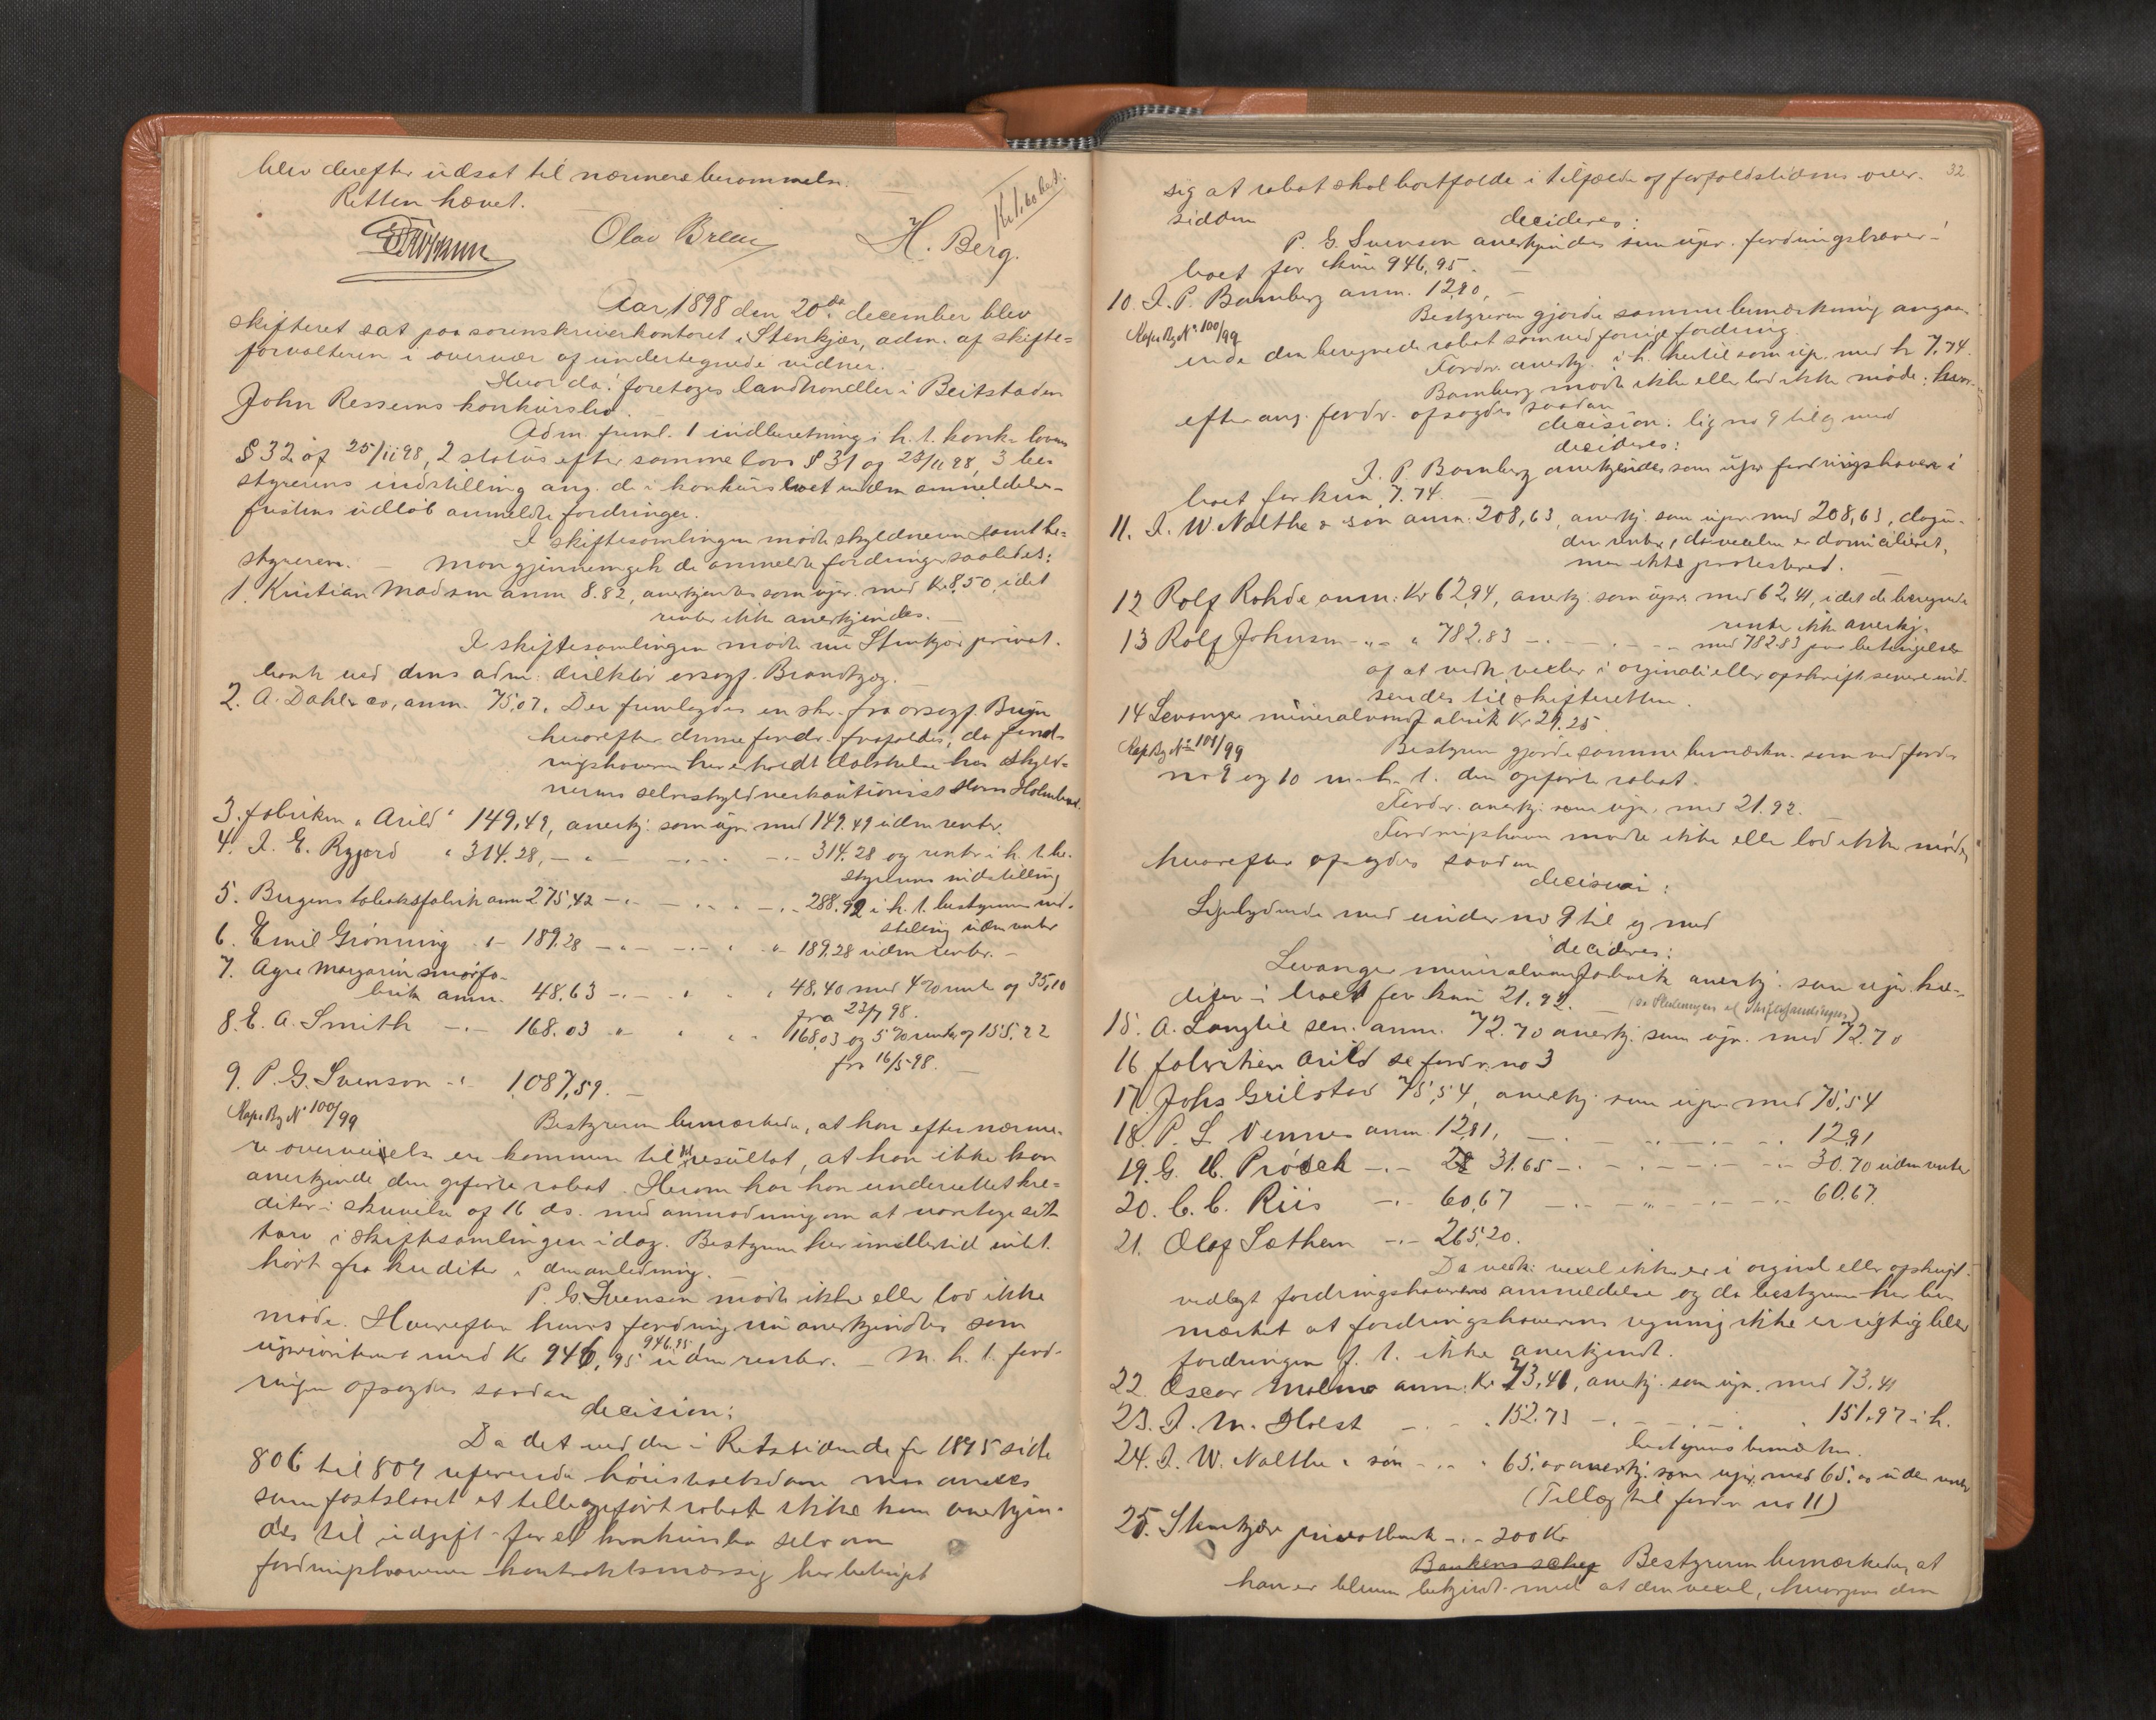 blev derefter udsat til nærmere berammelse.
Retten hævet.
Olav Breen H. Berg.
Aar 1898 den 20de december blev
skifteret sat paa sorenskriverkontoret i Stenkjær, adm. af skifte-
forvalteren i overvær af undertegnede vidner.
Hvorda: foretoges landhandler i Beitstaden
John Ressems konkursbo.
Adm. freml. 1 indberetning i h. t. konk. lovens
§ 32 af 25/11 98, 2 status efter samme lovs § 31 og 23/11 98, 3 be-
styrerens indstilling ang. de i konkursboet inden anmeldelses-
fristens udløb anmeldte fordringer.
I skiftesamlingen mødte skyldneren samt be-
styreren. – Man gjennemgik de anmeldte fordringer saaledes:
1. Kristian Madsen anm 8.82, anerkjendes som upr. med Kr 8,50, idet
renter ikke anerkjendes. –
I skiftesamlingen mødte nu Stenkjær privat-
bank ved dens adm. direktør orsagf. Brandtzæg.
2. A. Dahl & co, anm. 75,07. Der fremlagdes en skr. fra orsagf. Bugge
hvorefter denne fordr. frafaldes, da ford-
ringshaveren har erholdt dækkelse hos skyld-
nerens selvskyldnerkautionist Hans Holmberg.
3. fabriken "Arild" 149,49, anerkj. som upr. med 149.49 uden renter.
4. I. E. Rygjord " 314.28, – " – – 314.28 og renter i h. t. be-
styrerens indstilling
5. Bergens tobaksfabrik anm 275,42 – " – – 288.92 i h. t. bestyrerens ind-
stilling uden renter
6. Emil Grønning " – 189.28 – " – – 189.28 uden renter. –
7. Agra Margarinsmørfa-
brik anm. 48.63 – " – 48,40 med 4 % rente af 35,10
fra 23/7 98.
8. E. A. Smith – " – 168.03 " " 168,03 og 5 % rente af 155.22
fra 16/5 98. –
9. P. G. Svenson – " – 1,087,59. –
Kop. Bg No 100/99
Bestyreren bemærkede, at han efter nærme-
re overveielse er kommen til det resultat, at han ikke kan
anerkjende den opførte rabat. Herom har han underrettet kre-
ditor i skrivelse af 16 ds. med anmodning om at varetage sit
tarv i skiftesamlingen idag. Bestyreren har imidlertid intet
hørt fra kreditor i den anledning. –
P. G. Svenson mødte ikke eller lod ikke
møde. Hvorefter hans fordring nu anerkjendtes som
uprioriteret med Kr 946,95 946.95 uden renter. – M. h. t. ford-
ringen afsagdes saadan
decision:
Da det ved den i Retstidende for 1895 side
806 til 809 refererede høiesteretsdom maa ansees
som fastslaaet at tillægsført rabat ikke kan anerkjen-
des til udgift for et konkursbo selv om
fordringshaveren kontraktsmæssig har betinget
32
sig at rabat skal bortfalde i tilfælde af forfaldstidens over-
siddem
decideres:
P. G. Svenson anerkjendes som upr. fordringshaver i
boet for kun 946,95. –
10. I. P. Bamberg anm. 12,90, –
Kop. Bg No 100/99
Bestyreren gjorde samme bemærkning angaa-
ende den beregnede rabat som ved forrige fordring.
Fordr. anerkj. i h. hertil som upr. med kr 7,74.
Bamberg mødte ikke eller lod ikke møde; hvor-
efter ang. fordr. afsagdes saadan
decision: lig no 9 til og med
decideres:
I. P. Bamberg anerkjendes som upr. fordringshaver i
boet for kun 7.74. –
11. I. W. Nolthe & søn anm: 208,63, anerkj. som upr. med 208,63, dog u-
den renter, da vexelen er domicilieret,
men ikke protestered. –
12 Rolf Rohde anm: Kr 62,94, anerkj. som upr. med 62,41, idet de beregnede
renter ikke anerkj.
13 Rolf Johnsen – " – " 782.83 – " – – med 782.83 paa betingelse
af at vedk. vexler i orginal eller afskrift senere ind-
sendes til skifteretten.
14 Levanger mineralvandfabrik Kr 29.25
Kop. Bg No 101/99
Bestyreren gjorde samme bemærkn. som ved fordr.
no 9 og 10 m. h. t. den opførte rabat.
Fordr. anerkj. som upr. med 21.92.
Fordringshaveren mødte ikke eller lod ikke møde,
hvorefter afsagdes saadan
decision:
Ligelydende med under no 9 til og med
decideres:
Levanger mineralvandfabrik anerkj. som upr. kre-
ditor i boet for kun 21.92. –
15. A. Langlie sen. anm. 72.70 anerkj. som upr. med 72.70
16 fabriken Arild se fordr. no 3
17 Johs Grilstad 75,54, anerkj. som upr. med 75,54
18. P. L. Vennes anm. 12,91, – " – – 12,91
19. G. H. Prösch – " – 31.65 – " – – 30.70 uden renter
20. C. C. Riis – " – 60,67 – " – – 60.67.
21. Olaf Sæthem – " – 265,20.
Da vedk. vexel ikke er i orginal eller afskrift
vedlagt fordringshaverens anmeldelse og da bestyreren har be-
mærket at fordringshaverens regning ikke er rigtig blev
fordringen f. t. ikke anerkjendt.
22. Oscar Malmo anm. Kr 73,41, anerkj. som upr. med 73,41
23. I. M. Holst – " – 152.73 – " – – 151.97 i h.
bestyrerens bemærkn.
24. I. W. Nolthe & søn – " – 65.00 anerkj. som upr. med 65.00 uden renter
(Tillæg til fordr no 11)
25. Stenkjær privatbank – " – 200 Kr
Bankens chef Bestyreren bemærkede, at
han er bleven bekjendt med at den vexel, hvorpaa den